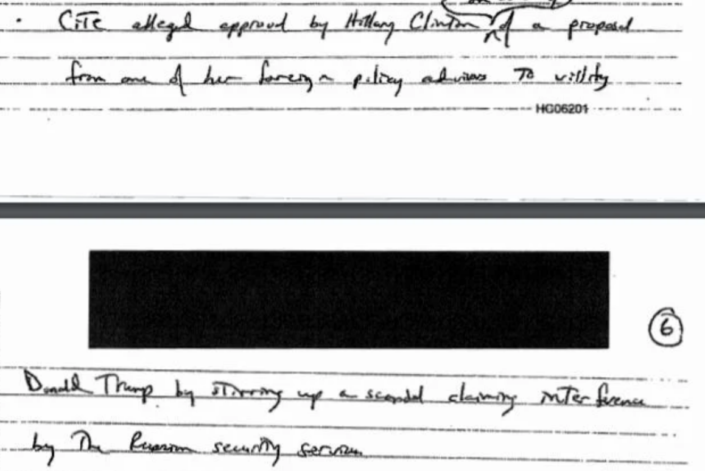 · CITE alleged approval by Hillary Clinton of a proposal
from one of her foreign policy advisors to vilify
HG06201
6
Donald Trump by stirring up a scandal claiming interference
by the Russian security services